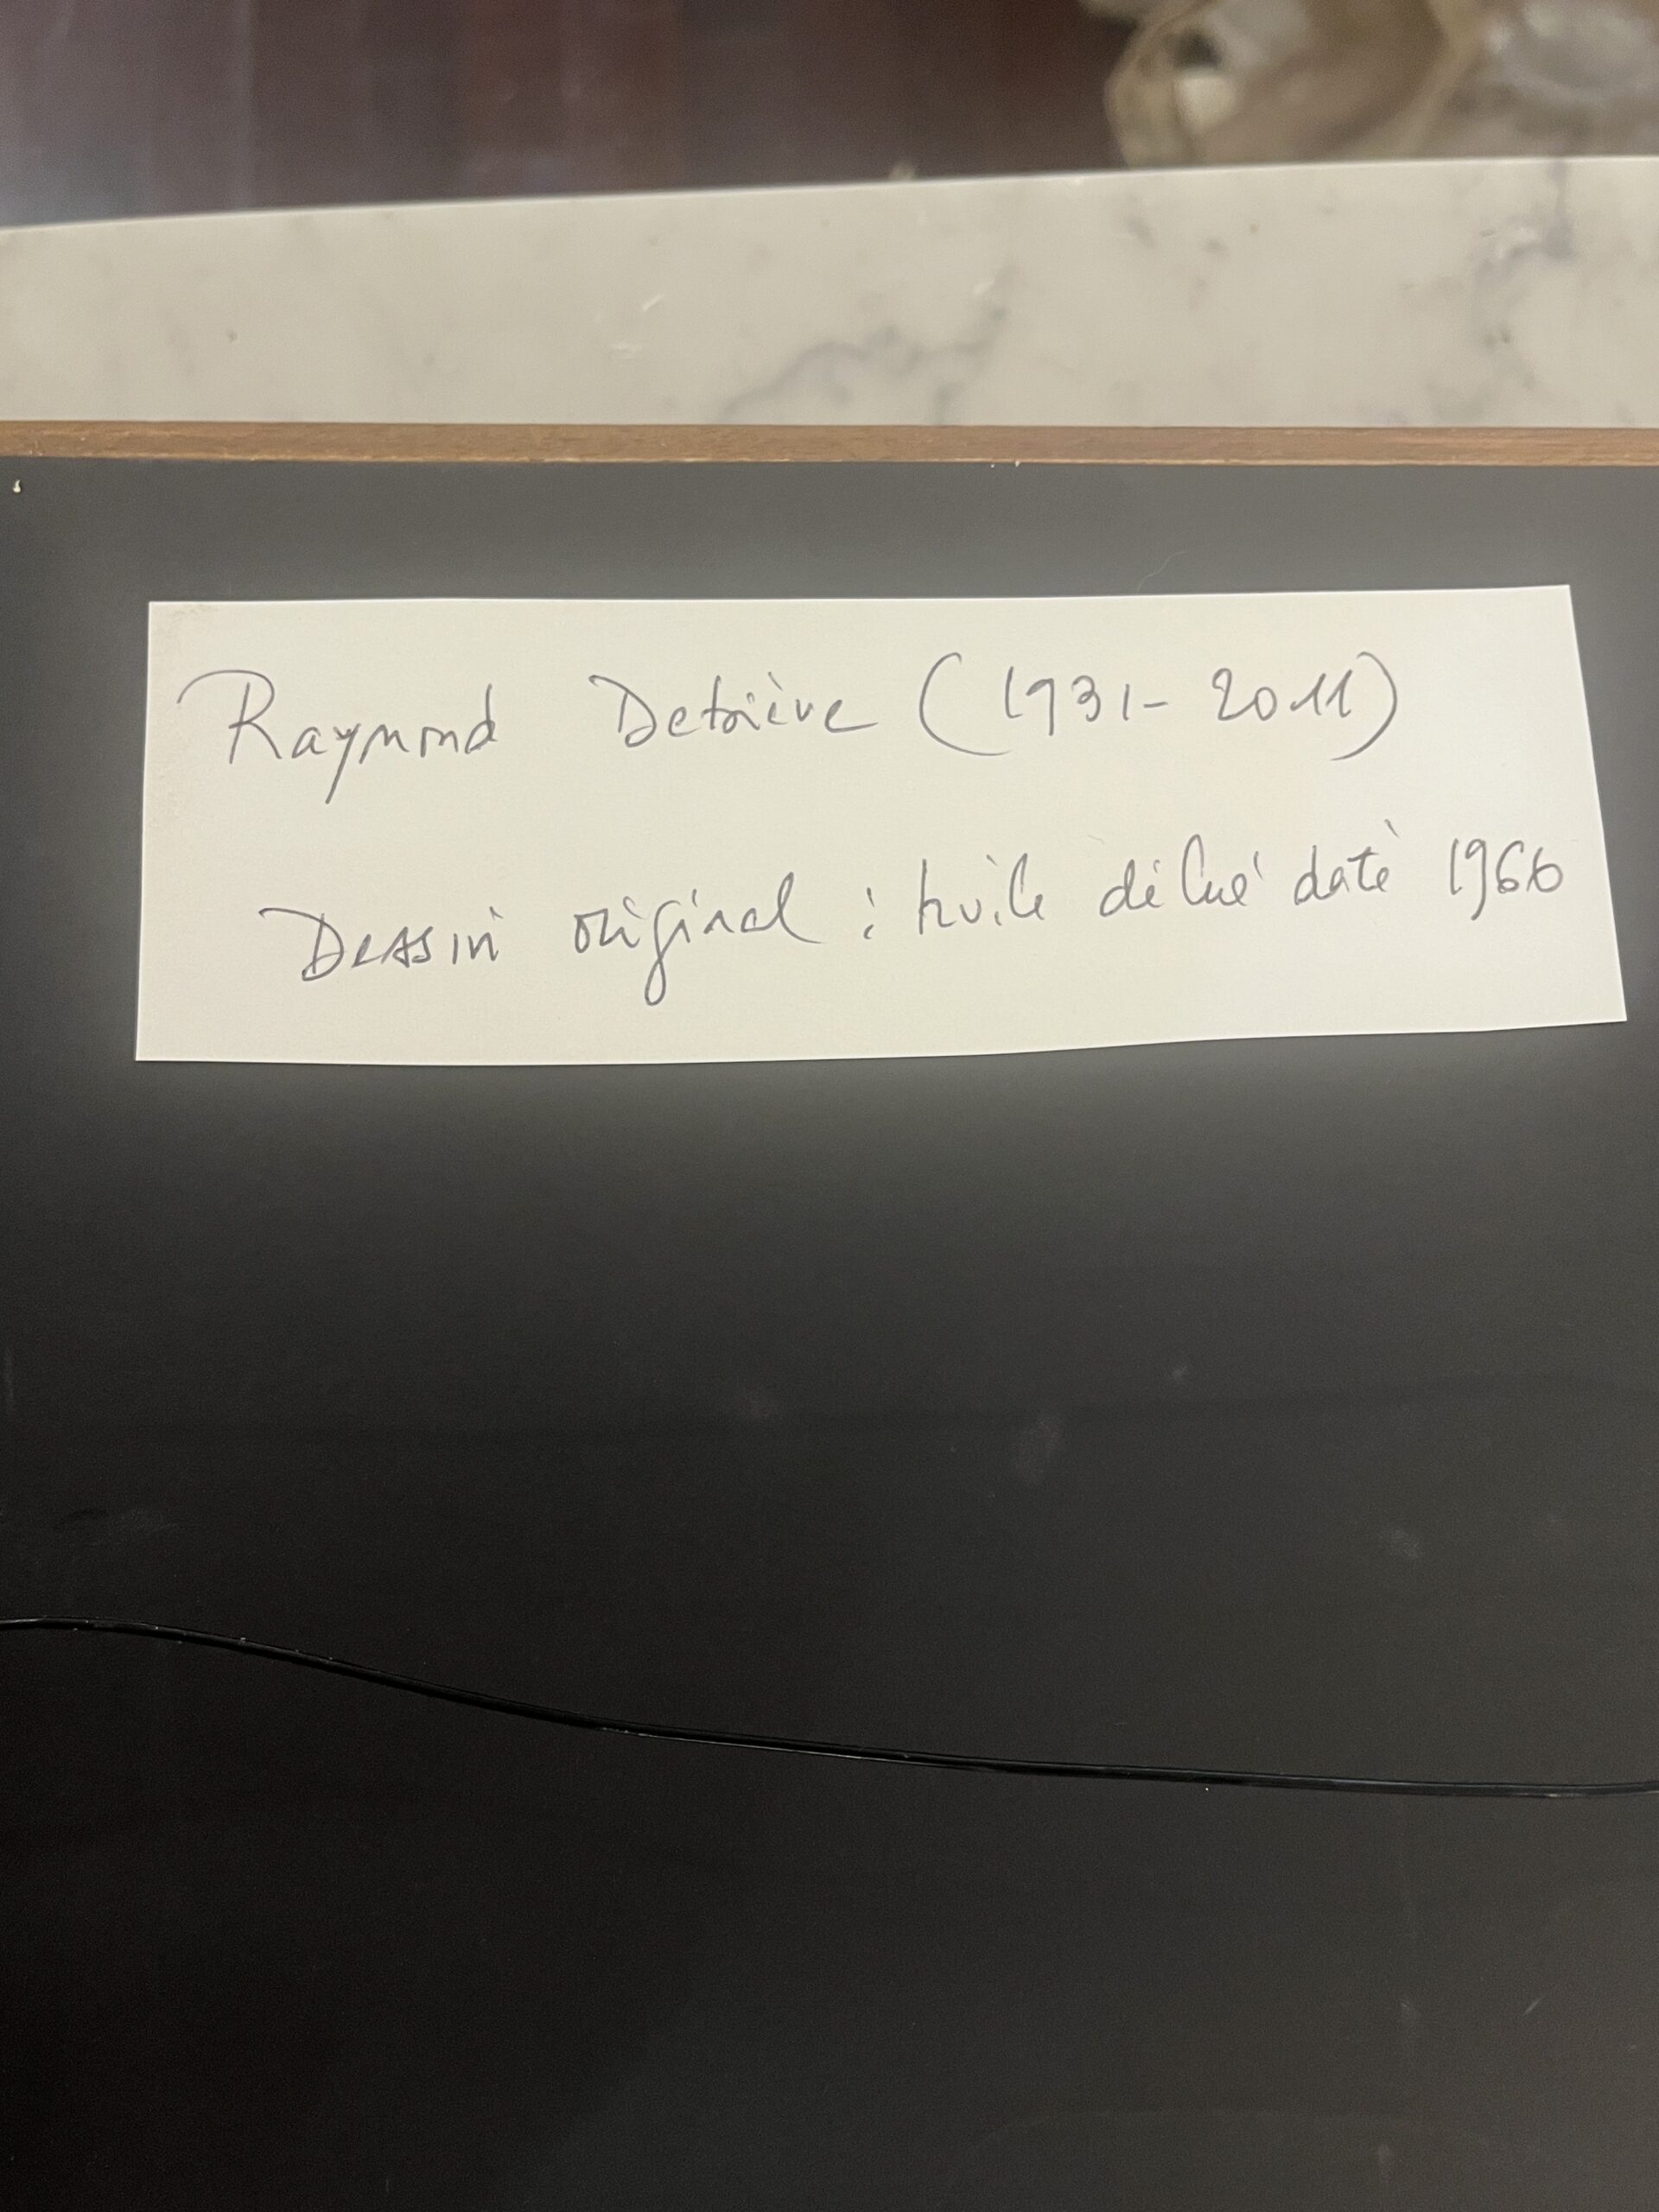 Raymond Detrième (1931-2011)
Dessin original : huile dilué daté 1966